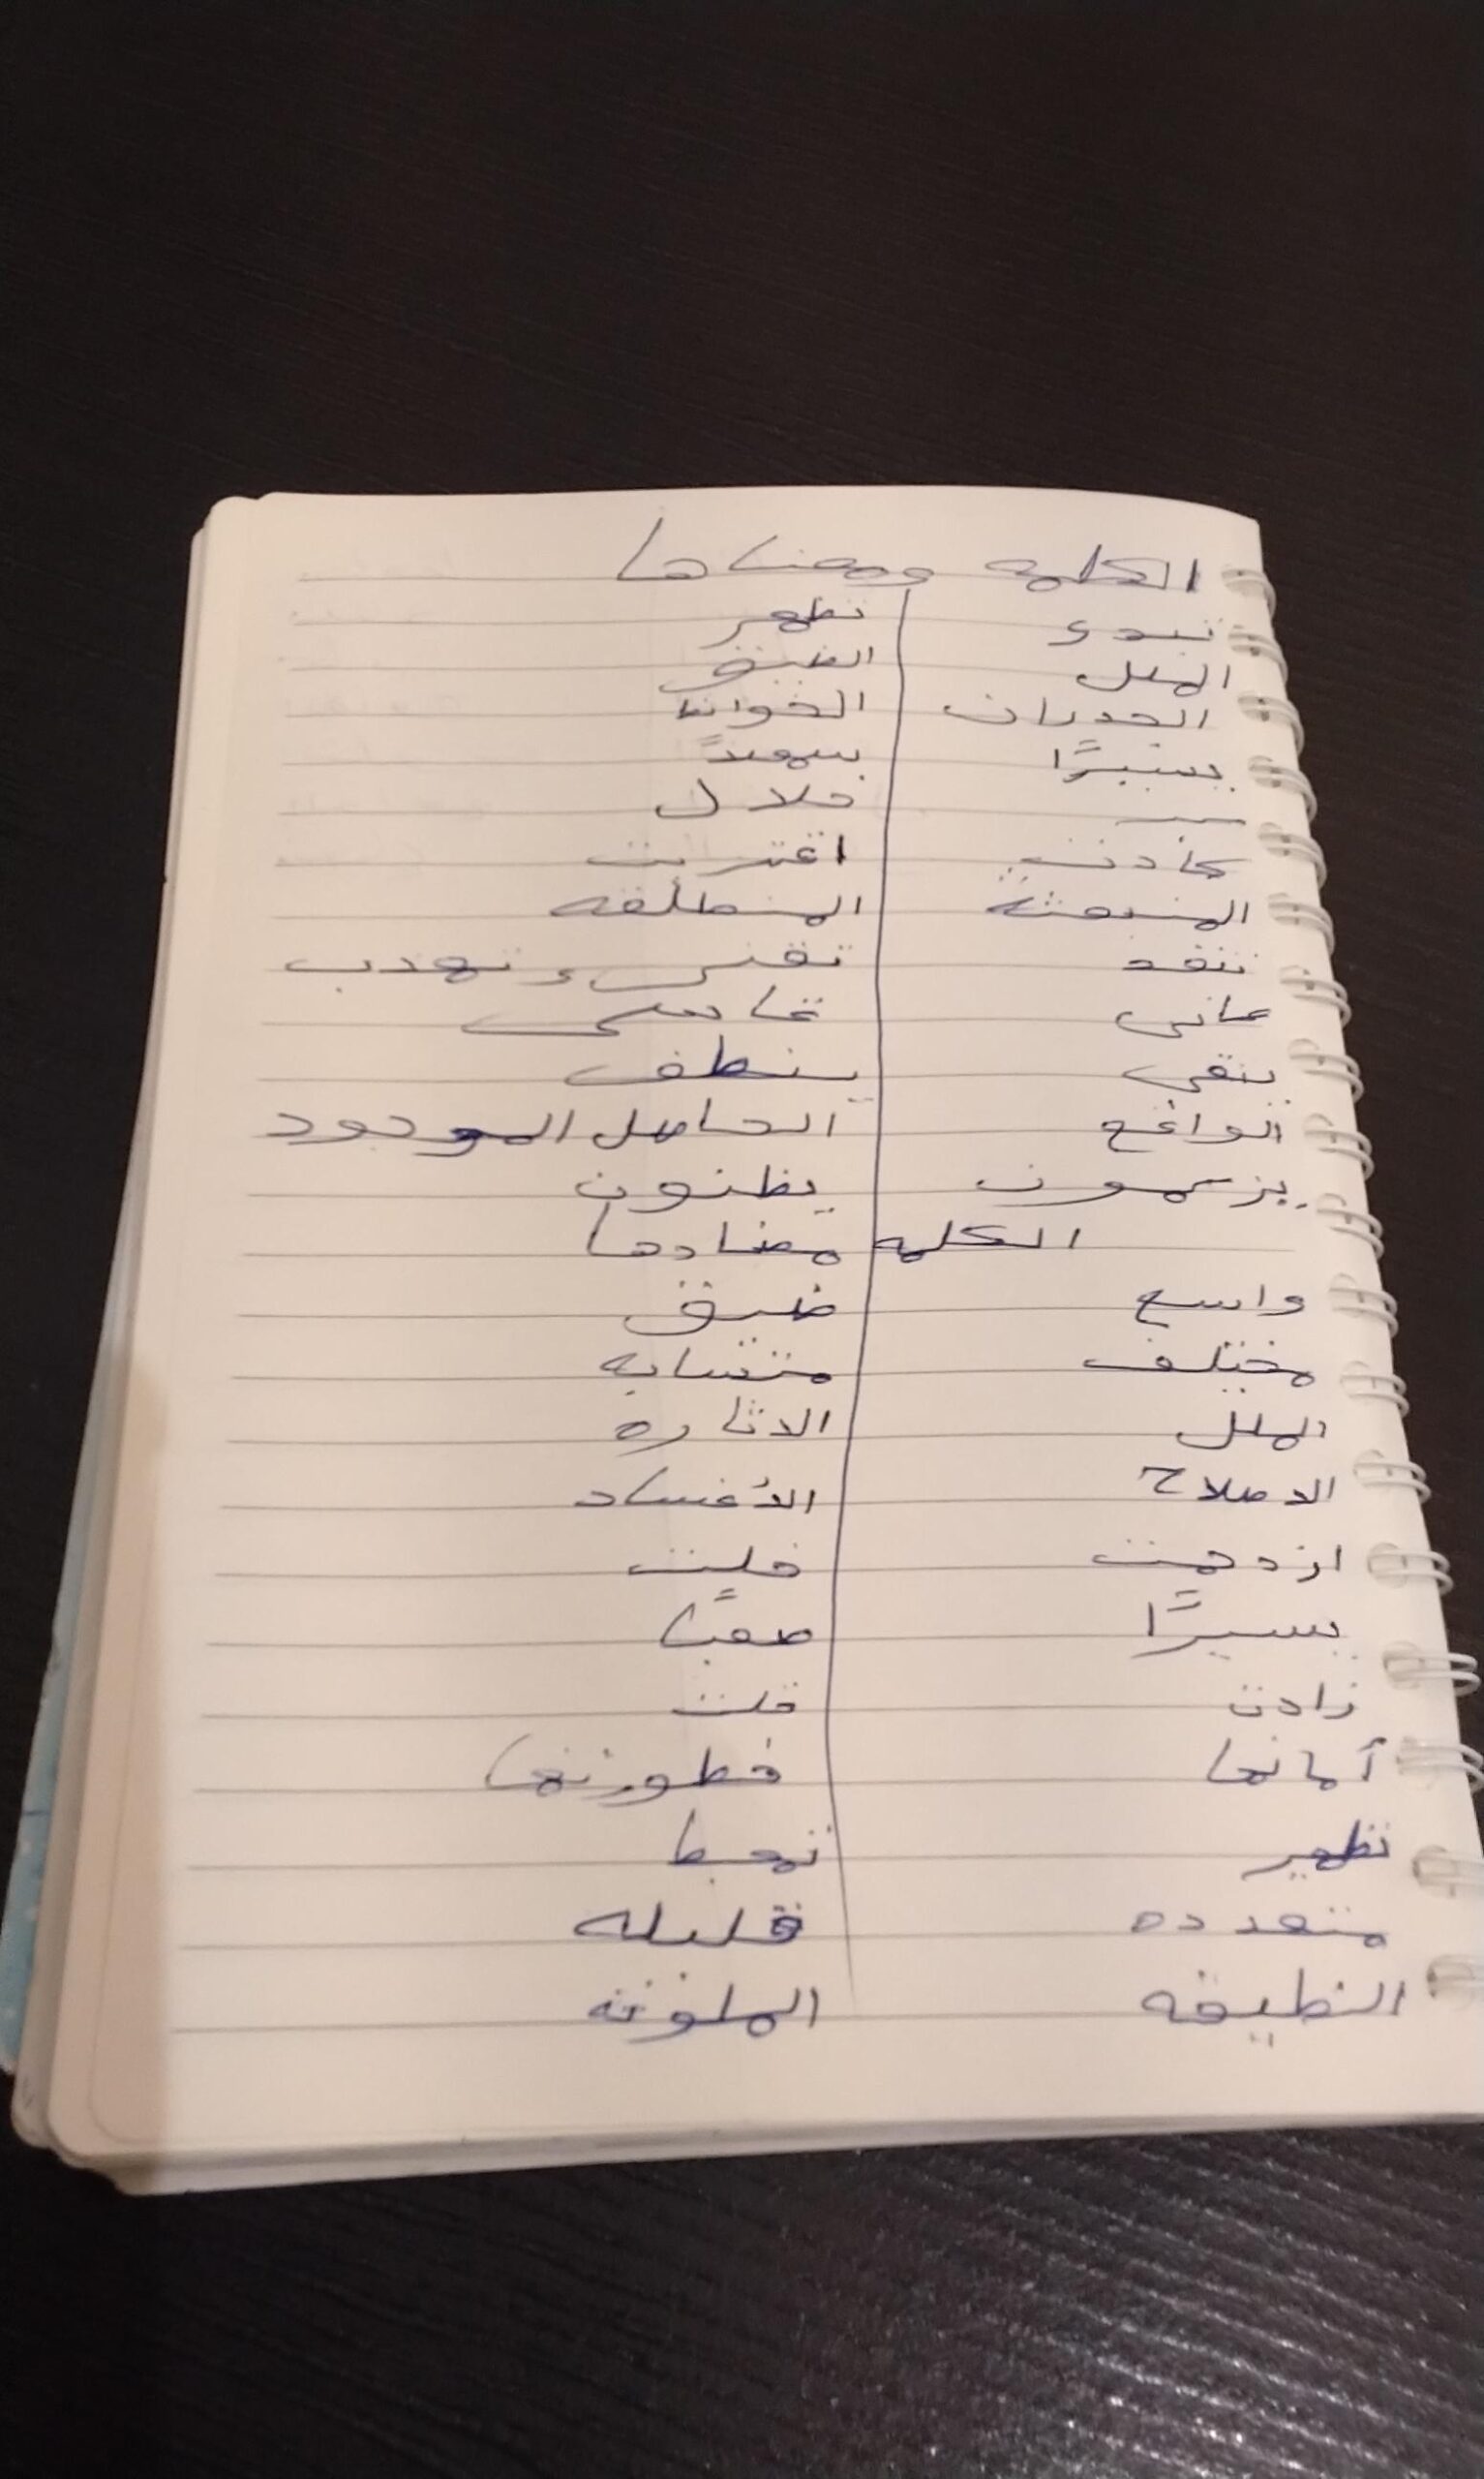 الكلمه ومعناها
تبدو تظهر
الملل الضيق
الجدران الحوائط
يسيرًا سهلاً
عبر خلال
كادت اقتربت
المنبعثة المنطلقه
تنقد تفنى وتهدب
عانى قاسى
ينقى ينظف
الواقع الحاصل الموجود
يزعمون يظنون
الكلمه مضادها
واسع ضيق
مختلف متشابه
الملل الاثاره
الاصلاح الأفساد
ازدحمت خليت
يسيرًا صعبًا
زادت قلت
أمانها خطورتها
تظهر تهبط
متعدده قليله
النظيفه الملوثه